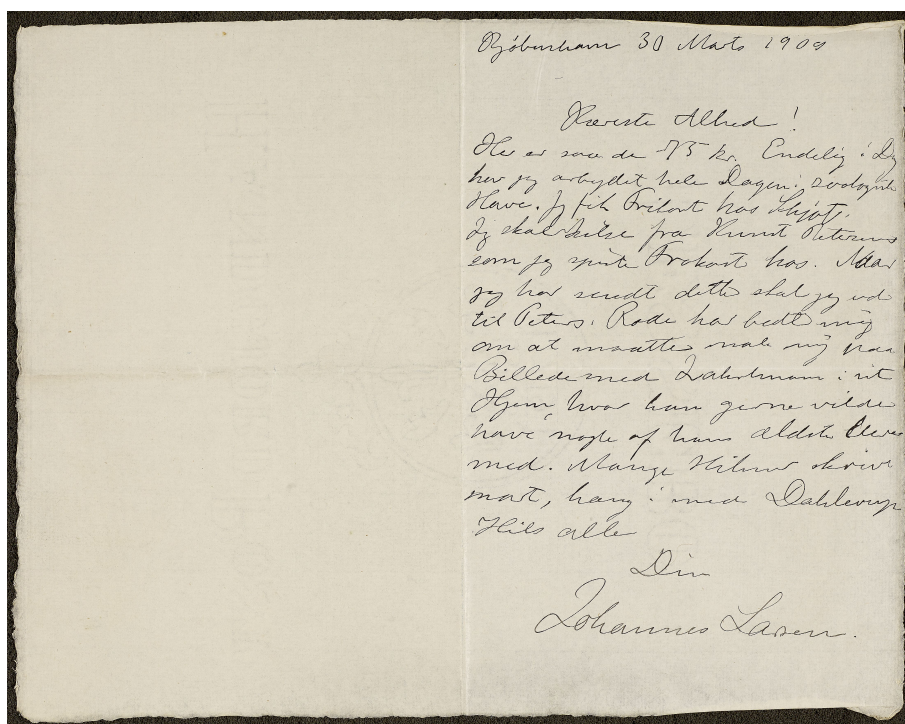 Kjøbenhavn 30 Marts 1909
Kæreste Alhed!
Her er saa de 75 kr. Endelig i Dag
har jeg arbejdet hele Dagen i zoologisk
Have. Jeg fik Frikort hos Skjøts.
Jeg skal hilse fra Kunst Petersens
som jeg spiste Frokost hos. Naar
jeg har sendt dette skal jeg ud
til Peters. Rode har bedt mig
om at maatte male mig paa
Billede med Zahrtmann i sit
Hjem, hvor han gerne vilde
have nogle af hans ældste Elever
med. Mange Hilsner skriv
snart, hæng i med Dahlerup
Hils alle
Din
Johannes Larsen.